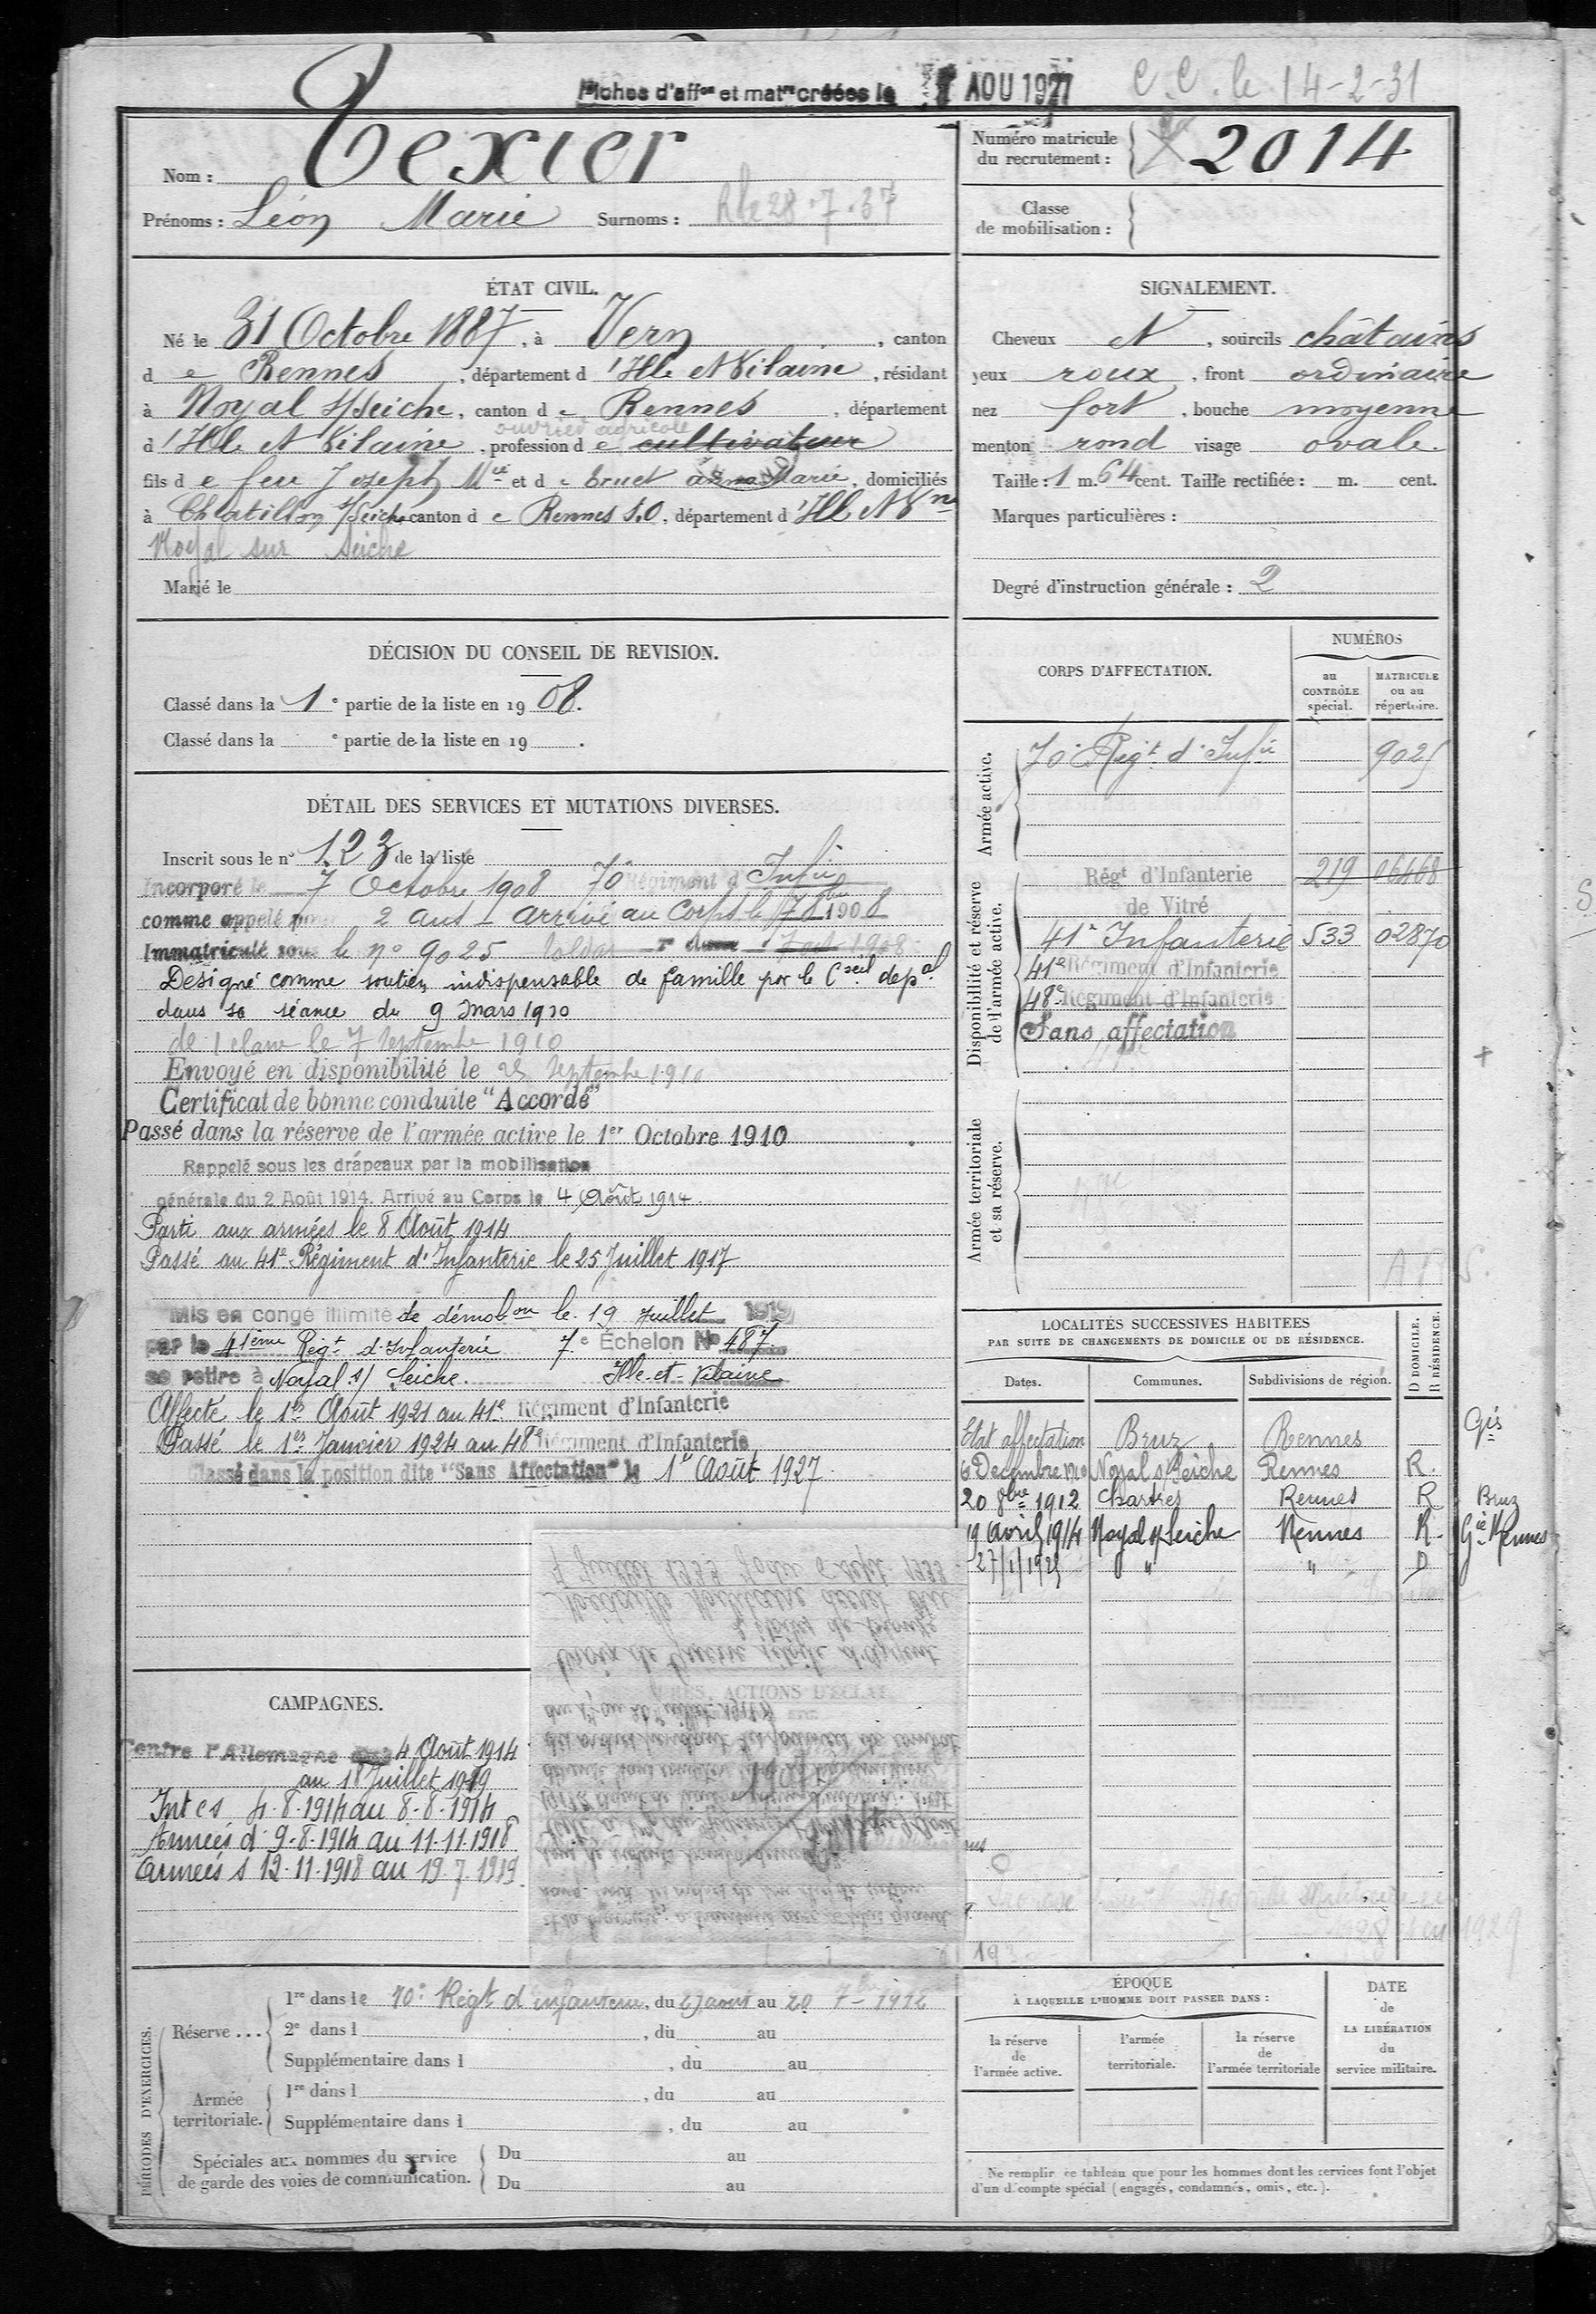 Fiches d'affon et matre créées le AOU 1927
C.C. le 14-2-31
Nom : Texier
Prénoms : Léon Marie Surnoms : R le 28.7.37
Numéro matricule
du recrutement :
2014
Classe
de mobilisation :
ÉTAT CIVIL.
Né le 31 Octobre 1887, à Vern, canton
de Rennes, département d'Ille et Vilaine, résidant
à Noyal s/Seiche, canton de Rennes, département
ouvrier agricole
d'Ille et Vilaine, profession de cultivateur
fils de feu Joseph Mie et de Marie, domiciliés
à Chatillon s/Seiche canton de Rennes S.O, département d'Ille et Vne
Noyal sur Seiche
Marié le
SIGNALEMENT.
Cheveux N, sourcils châtains
yeux roux, front ordinaire
nez fort, bouche moyenne
menton rond visage ovale.
Taille : 1 m. 64 cent. Taille rectifiée : m. cent.
Marques particulières :
Degré d'instruction générale : 2
DÉCISION DU CONSEIL DE REVISION.
Classé dans la 1e partie de la liste en 1908.
Classé dans la e partie de la liste en 19 .
DÉTAIL DES SERVICES ET MUTATIONS DIVERSES.
Inscrit sous le n° 123 de la liste
Incorporé le 7 Octobre 1908 70 Régiment d'Infie
comme appelé pour 2 ans - arrivé au Corps le 7 8bre 1908
Immatriculé sous le n° 9025 Soldat 1908
Désigné comme soutien indispensable de famille par le Cseil depal
dans sa séance du 9 Mars 1910
de 1 classe le 7 Septembre 1910
Envoyé en disponibilité le 25 Septembre 1910
Certificat de bonne conduite "Accordé"
Passé dans la réserve de l'armée active le 1er Octobre 1910
Rappelé sous les drapeaux par la mobilisation
générale du 2 Août 1914. Arrivé au Corps le 4 Août 1914.
Parti aux armées le 8 Août 1914
Passé au 41e Régiment d'Infanterie le 25 Juillet 1917
Mis en congé illimité de démobon le 19 Juillet 1919
par le 41ème Régt d'Infanterie 7e Échelon No 487
se retire à Noyal s/ Seiche. Ille-et-Vilaine
Affecté le 1er Août 1921 au 41e Régiment d'Infanterie
Passé le 1er Janvier 1924 au 48e Régiment d'Infanterie
Classé dans la position dite "Sans Affectation" le 1er Août 1927.
CORPS D'AFFECTATION.
NUMÉROS
au
CONTRÔLE
spécial.
MATRICULE
ou au
répertoire.
Armée active.
70e Régt d'Infie 9025
Disponibilité et réserve
de l'armée active.
Régt d'Infanterie 219
de Vitré
41e Infanterie 533 02870
41e Régiment d'Infanterie
48e Régiment d'Infanterie
Sans affectation
Armée territoriale
et sa réserve.
LOCALITÉS SUCCESSIVES HABITÉES
PAR SUITE DE CHANGEMENTS DE DOMICILE OU DE RÉSIDENCE.
Dates. Communes. Subdivisions de région.
D DOMICILE.
R RÉSIDENCE.
Etat affectation Bruz Rennes Gés
6 Decembre 1910 Noyal s/Seiche Rennes R.
20 8bre 1912 Chartres Rennes R Bruz
19 Avril 1914 Noyal s/Seiche Rennes R. Gie Rennes
27/1/1925 " " D
7 Juillet 1933
Médaille Militaire décret du
Croix de Guerre étoile d'Argent
ACTIONS D'ÉCLAT
CAMPAGNES.
Contre l'Allemagne du 4 Août 1914
au 18 Juillet 1919
Int cs 4.8.1914 au 8.8.1914
Armées d 9.8.1914 au 11.11.1918
Armées s 12.11.1918 au 19.7.1919.
PÉRIODES D'EXERCICES.
Réserve ...
1re dans le 70e Régt d'infanterie, du 27 aout au 20 7- 1912
2e dans l , du au
Supplémentaire dans l , du au
Armée
territoriale.
1re dans l , du au
Supplémentaire dans l , du au
Spéciales aux hommes du service
de garde des voies de communication.
Du au
Du au
ÉPOQUE
À LAQUELLE L'HOMME DOIT PASSER DANS :
la réserve
de
l'armée active.
l'armée
territoriale.
la réserve
de
l'armée territoriale
DATE
de
LA LIBÉRATION
du
service militaire.
Ne remplir ce tableau que pour les hommes dont les services font l'objet
d'un décompte spécial (engagés, condamnés, omis, etc.).